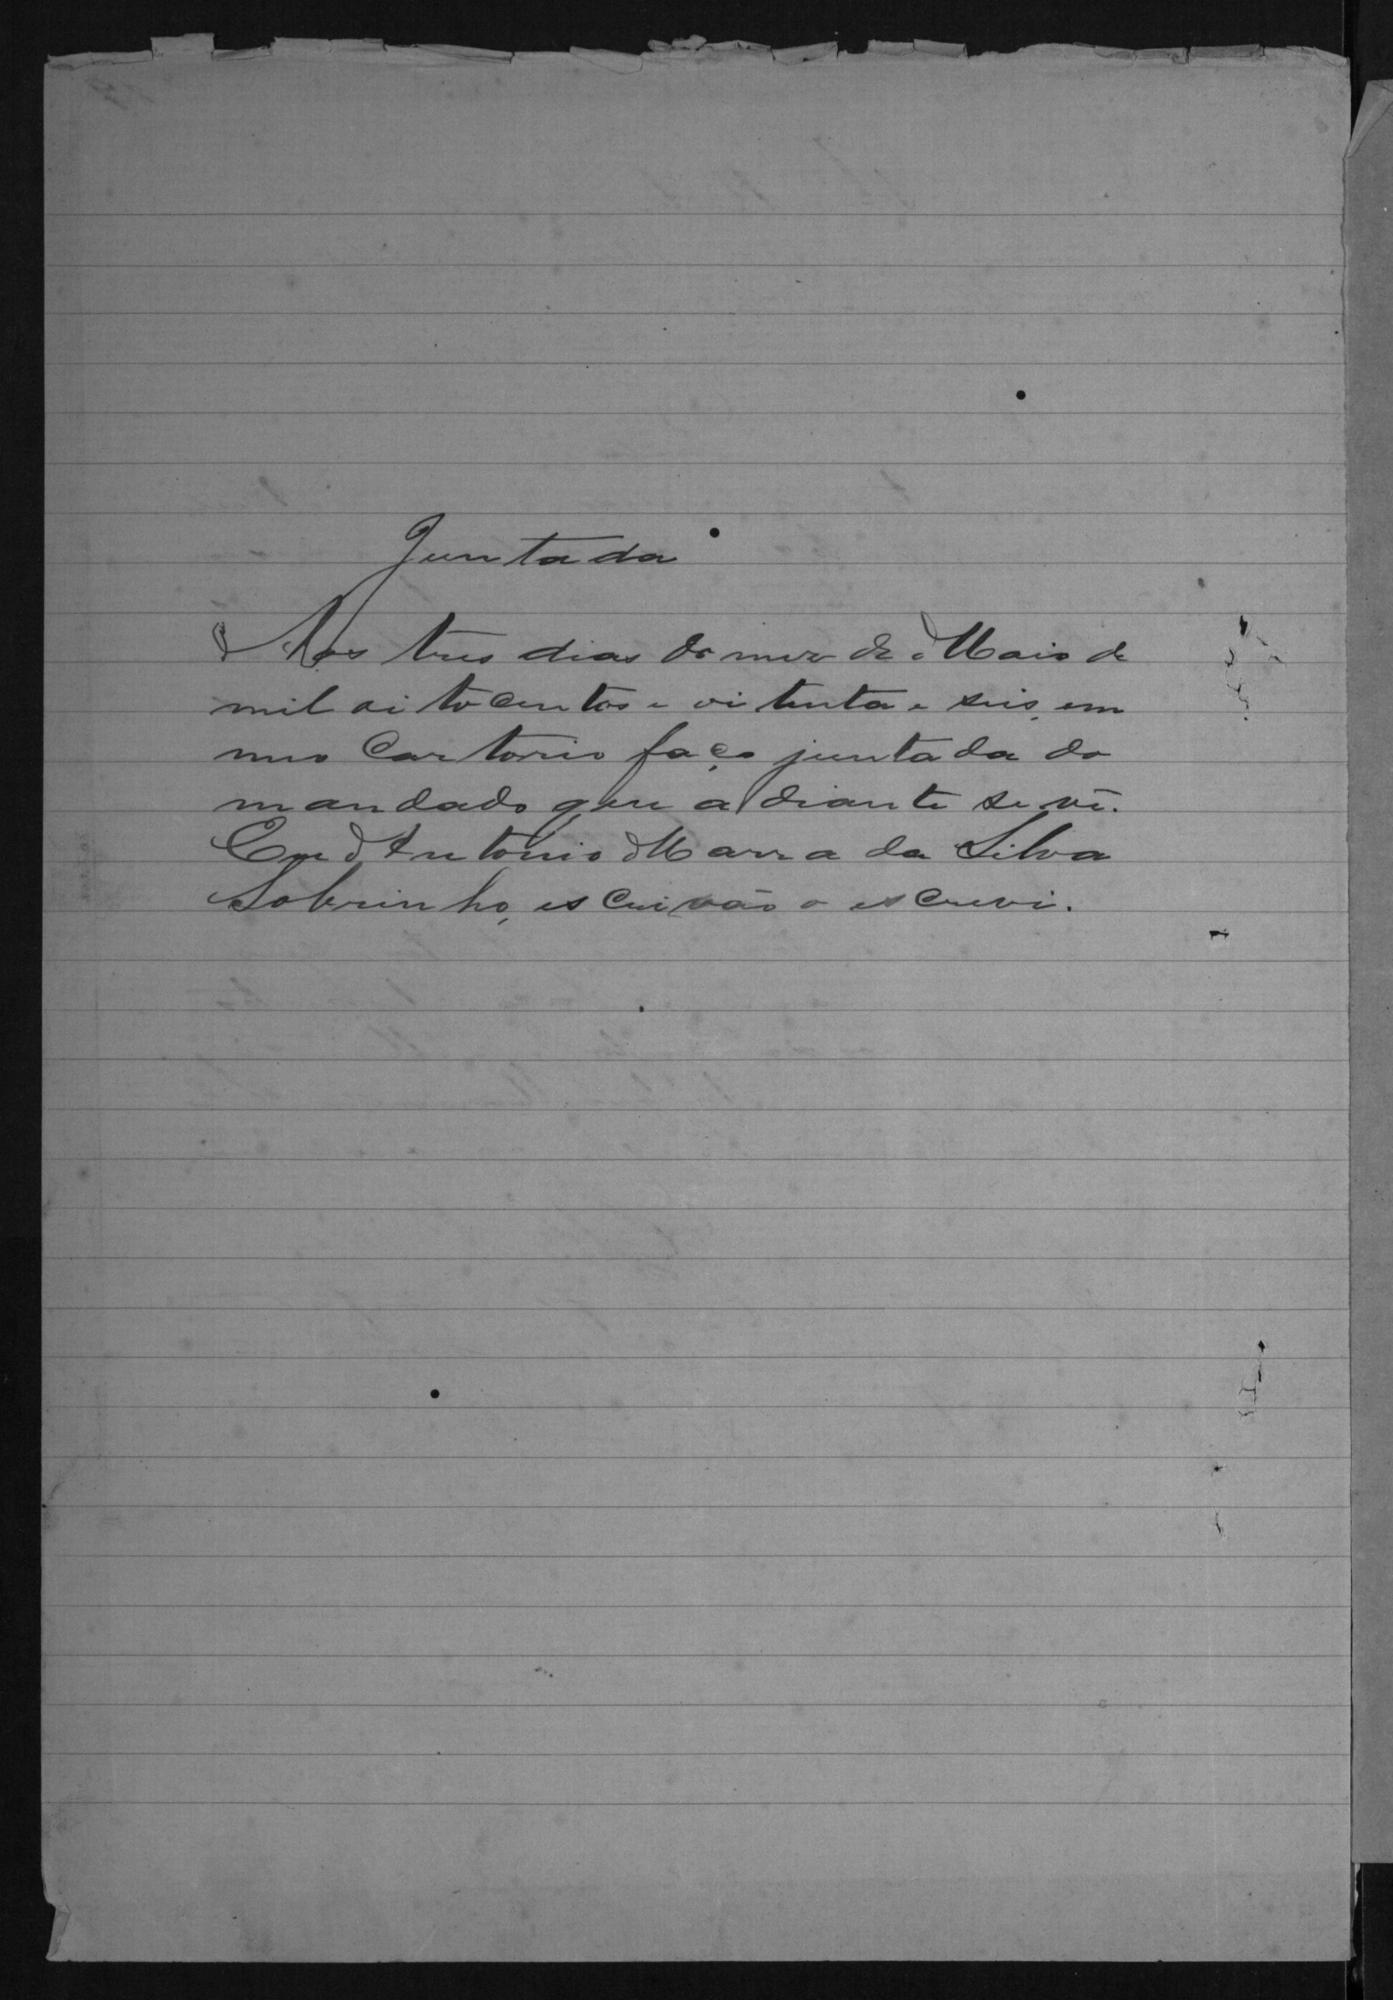 Juntada
Aos tres dias do mez de Maio de
mil oitocentos e oitenta e seis, em
meo Cartorio faço juntada do
mandado que adiante se vê.
Eu Antonio Marra da Silva
Sobrinho, escrivão o escrevi.